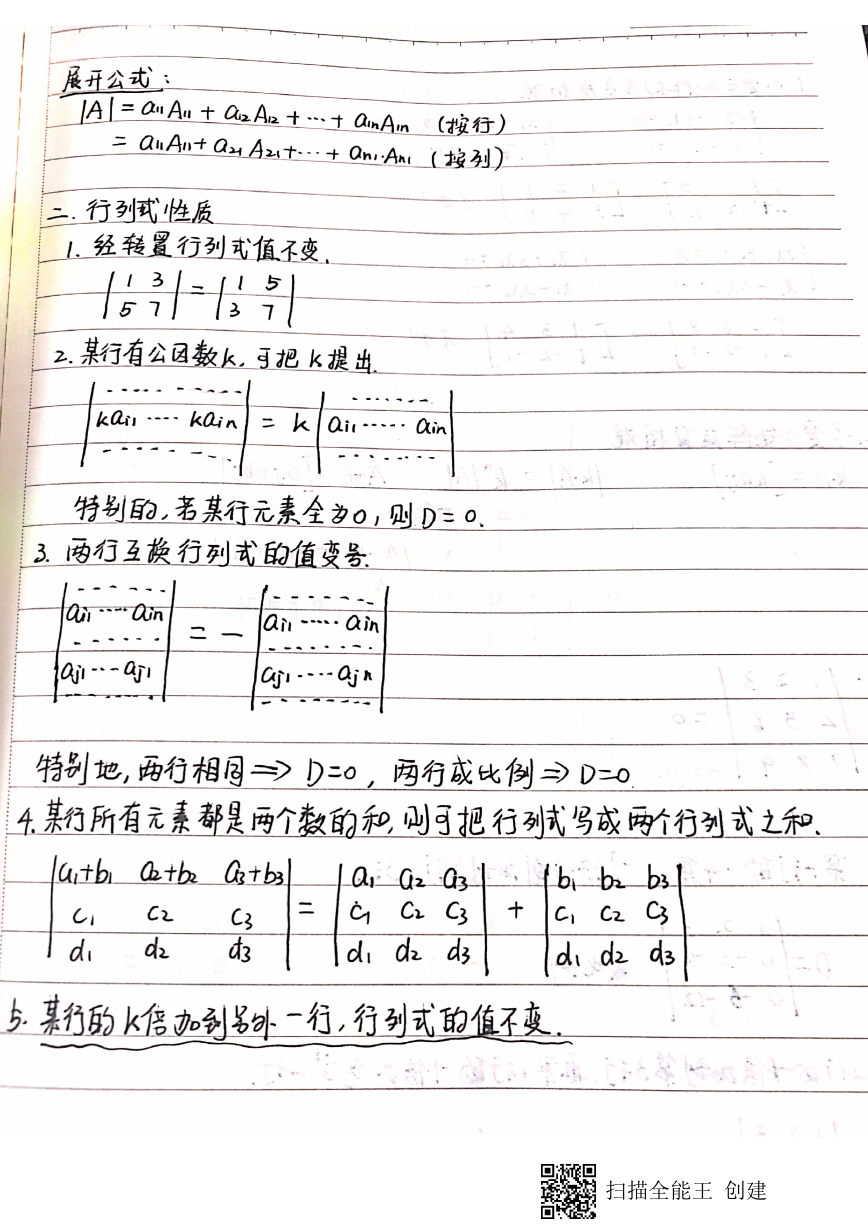 展开公式：
|A| = a₁₁A₁₁ + a₁₂A₁₂ + ⋯ + a₁ₙA₁ₙ （按行）
= a₁₁A₁₁ + a₂₁A₂₁ + ⋯ + aₙ₁·Aₙ₁ （按列）
二. 行列式性质
1. 经转置行列式值不变.
|1 3| = |1 5|
|5 7| |3 7|
2. 某行有公因数k, 可把k提出.
|kaᵢ₁ ⋯⋯ kaᵢₙ| = k |aᵢ₁ ⋯⋯ aᵢₙ|
特别的, 若某行元素全为0, 则D=0.
3. 两行互换行列式的值变号.
|aᵢ₁ ⋯⋯ aᵢₙ| = − |aᵢ₁ ⋯⋯ aᵢₙ|
|aⱼ₁ ⋯ aⱼ₁| |aⱼ₁ ⋯⋯ aⱼₙ|
特别地, 两行相同 ⟹ D=0, 两行成比例 ⟹ D=0
4. 某行所有元素都是两个数的和, 则可把行列式写成两个行列式之和.
|a₁+b₁ a₂+b₂ a₃+b₃| = |a₁ a₂ a₃| + |b₁ b₂ b₃|
|c₁ c₂ c₃| |c₁ c₂ c₃| |c₁ c₂ c₃|
|d₁ d₂ d₃| |d₁ d₂ d₃| |d₁ d₂ d₃|
5. 某行的K倍加到另外一行, 行列式的值不变.
扫描全能王 创建